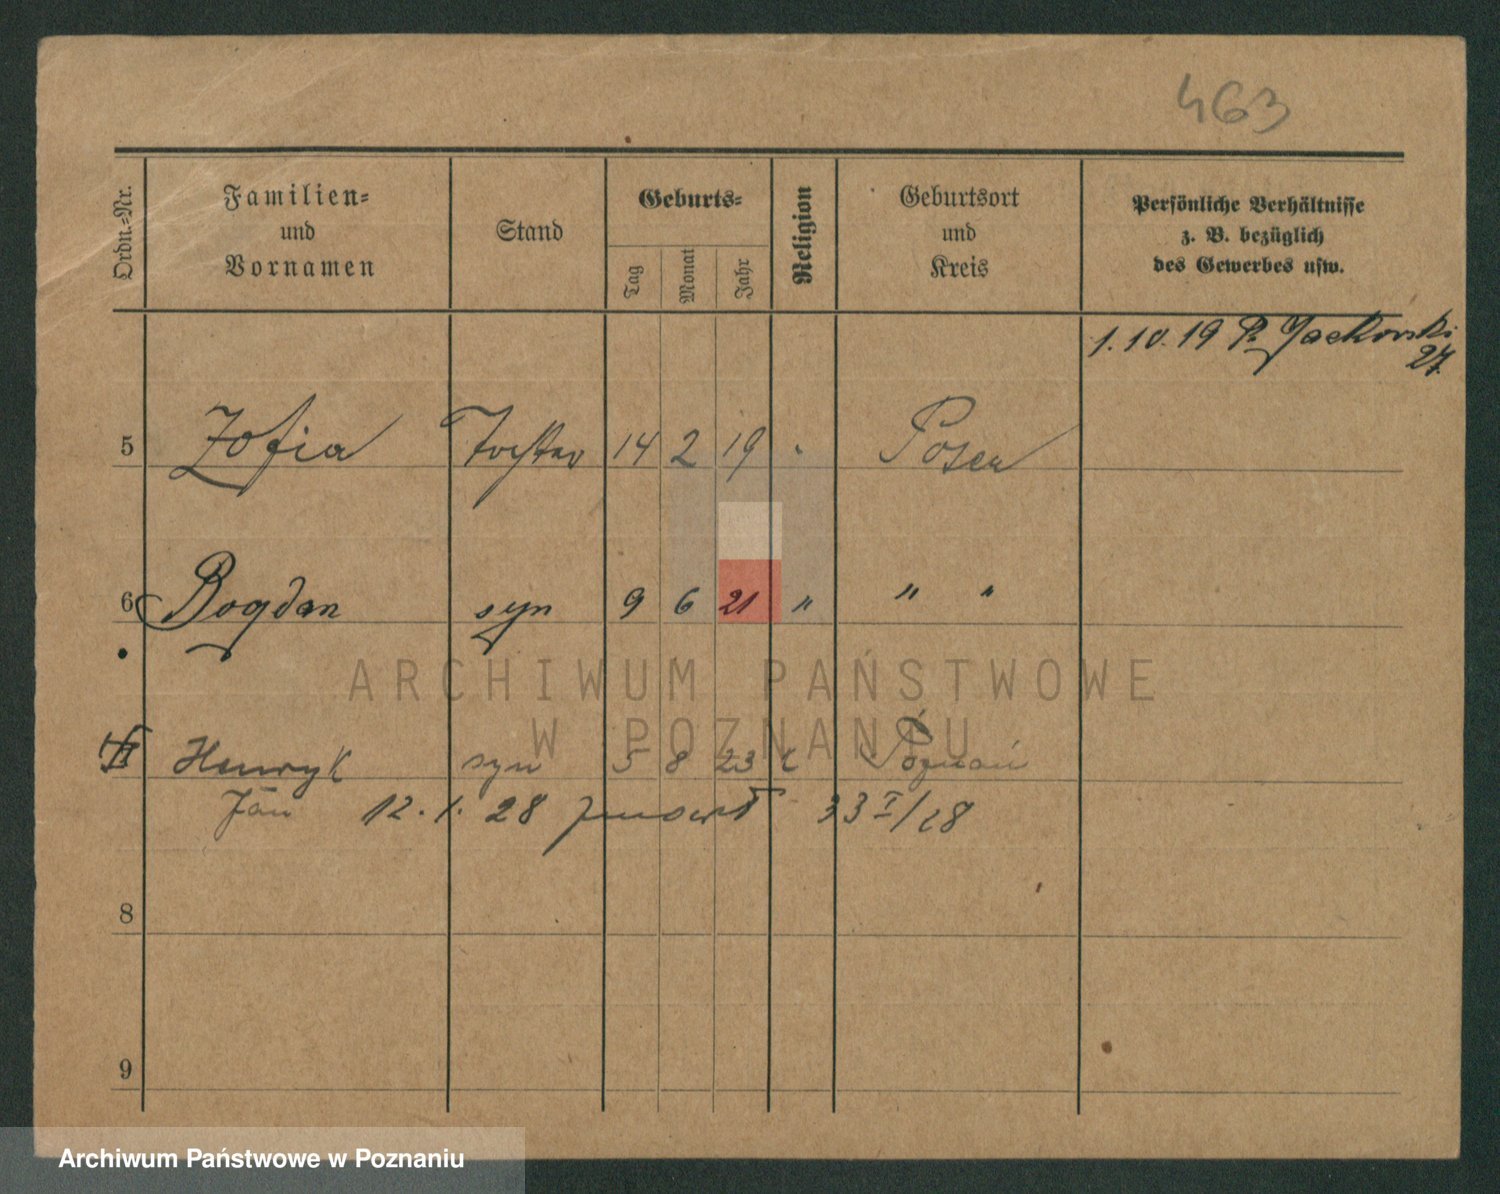 463
Ordn.-Nr.
Familien-
und
Vornamen
Stand
Geburts-
Tag
Monat
Jahr
Religion
Geburtsort
und
Kreis
Persönliche Verhältnisse
z. B. bezüglich
des Gewerbes usw.
1. 10. 19 P. Jackowski
27.
5 Zofia Tochter 14 2 19 " Posen
6 Bogdan syn 9 6 21 " " "
ARCHIWUM PAŃSTWOWE
W POZNANIU
Henryk syn 5 8 23 k Poznań
Jan 12. 1. 28 33 I/28
8
9
Archiwum Państwowe w Poznaniu